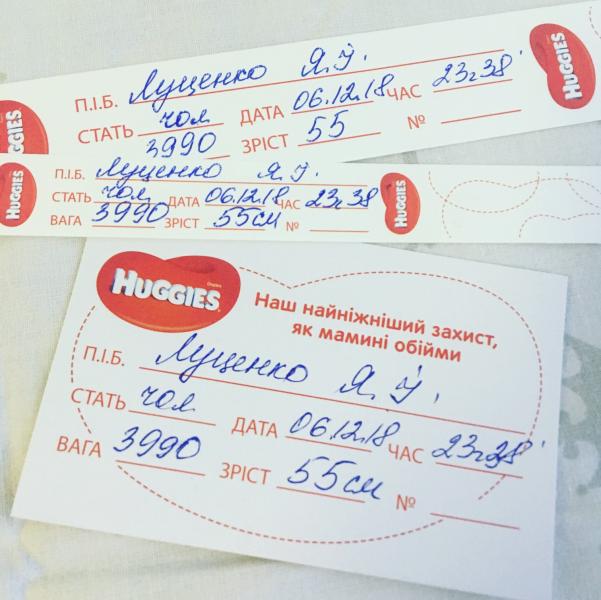 П.І.Б. Луценко Я. У.
HUGGIES
СТАТЬ чол ДАТА 06.12.18 ЧАС 23ч38'
3990 ЗРІСТ 55 №
GGIES
П.І.Б. Луценко Я. У.
HUGGIES
СТАТЬ чол ДАТА 06.12.18 ЧАС 23ч38
HUGGIES
ВАГА 3990 ЗРІСТ 55см №
HUGGIES
Наш найніжніший захист,
як мамині обійми
П.І.Б. Луценко Я. У.
СТАТЬ чол ДАТА 06.12.18 ЧАС 23ч38'
ВАГА 3990 ЗРІСТ 55см №